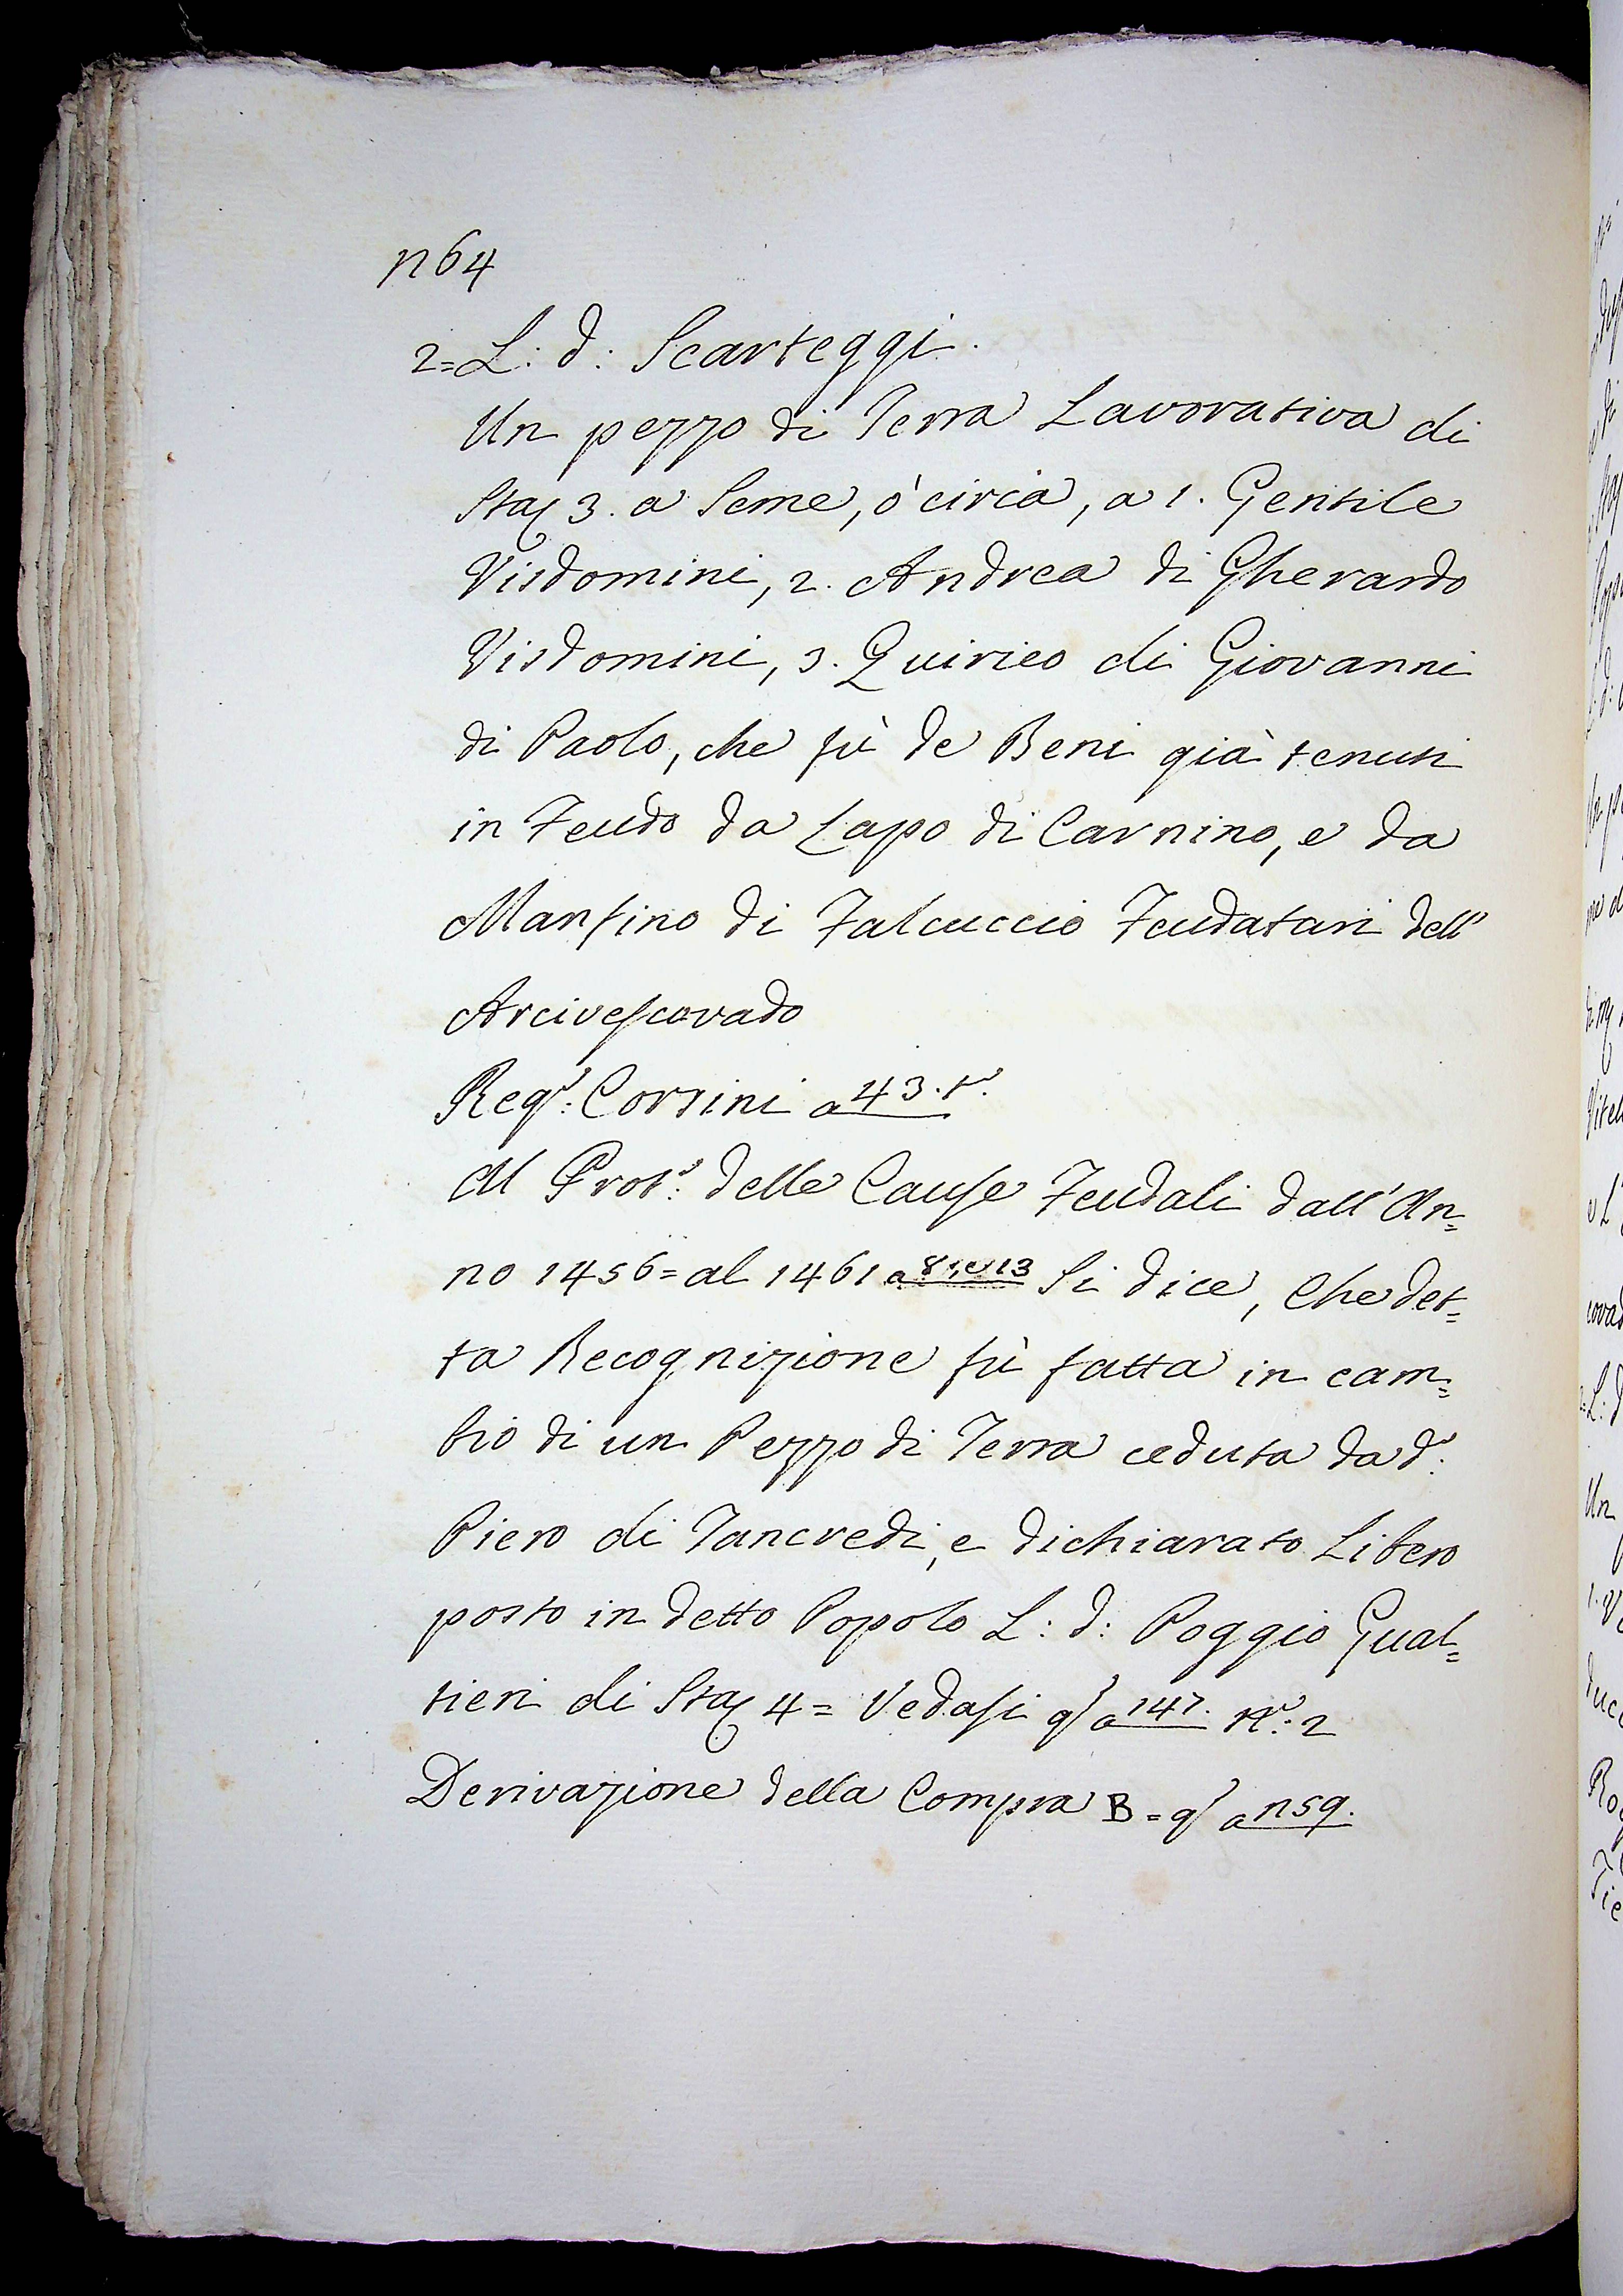 n64
2=L: d: Scarteggi.
Un pezzo di Terra Lavorativa di
Staj 3. a Seme, ò circa, a 1. Gentile
Visdomini, 2. Andrea di Gherardo
Visdomini, 3. Quirico di Giovanni
di Paolo, che fù de Beni già tenuti
in Feudo da Lapo di Carnino, e da
Manfino di Falcuccio Feudatari dell'
Arcivescovado
Reg.º: Corsini a 43. tº.
Al Prot.º: delle Cause Feudali dall'An=
no 1456= al 1461 a 8, e 13 Si dice, Che det=
ta Recognizione fù fatta in cam=
bio di un Pezzo di Terra ceduta da d.º:
Piero di Tancredi, e dichiarato Libero
posto in detto Popolo L: d: Poggio Gual=
tieri di Staj 4= Vedasi qs a 147. Nº: 2
Derivazione della Compra B= qs a n59.